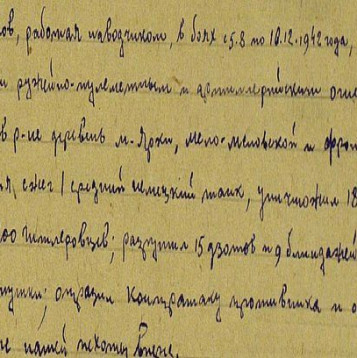 ов, работая наводчиком, в боях с 5.8 по 10.12.1942 года,
ружейно-пулеметным и артиллерийским огне
в р-не деревень М-Ярки, Мело-Меловской и Фрон
сжег 1 средний немецкий танк, уничтожил 18
00 гитлеровцев; разрушил 15 дзотов и 9 блиндажей
пушки; отразил контратаку противника и о
нашей пехоты вперед.